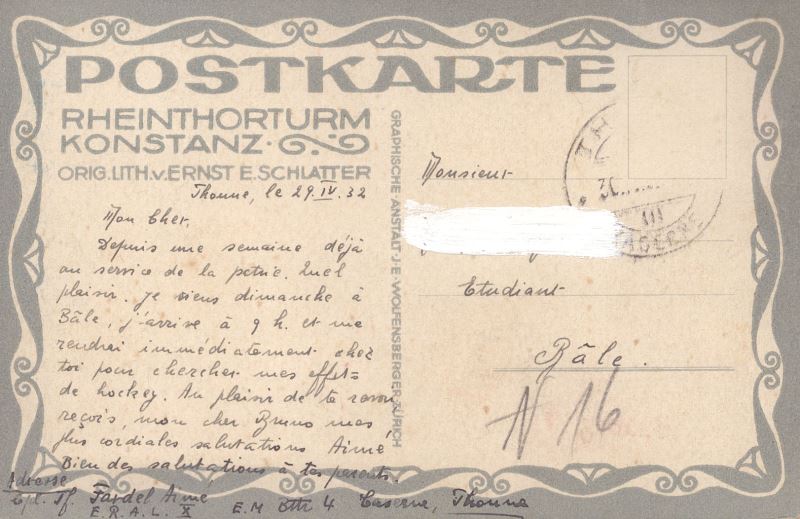 POSTKARTE
RHEINTHORTURM
KONSTANZ
ORIG. LITH. v. ERNST E. SCHLATTER
GRAPHISCHE ANSTALT J. E. WOLFENSBERGER ZÜRICH
Thoune, le 29. IV. 32
Mon Cher,
Depuis une semaine déjà
au service de la patrie. Quel
plaisir. Je viens dimanche à
Bâle, j'arrive à 9 h. et me
rendrai immédiatement chez
toi pour chercher mes effets
de hockey. Au plaisir de te revoir
reçois, mon cher Bruno mes
plus cordiales salutations Aimé
Bien des salutations à tes parents.
Adresse
Cpl. Tf. Fardel Aimé
E.R.A.L. X E.M Bttr 4 Caserne, Thoune
Monsieur
Etudiant
Bâle.
N 16
TH
30
III